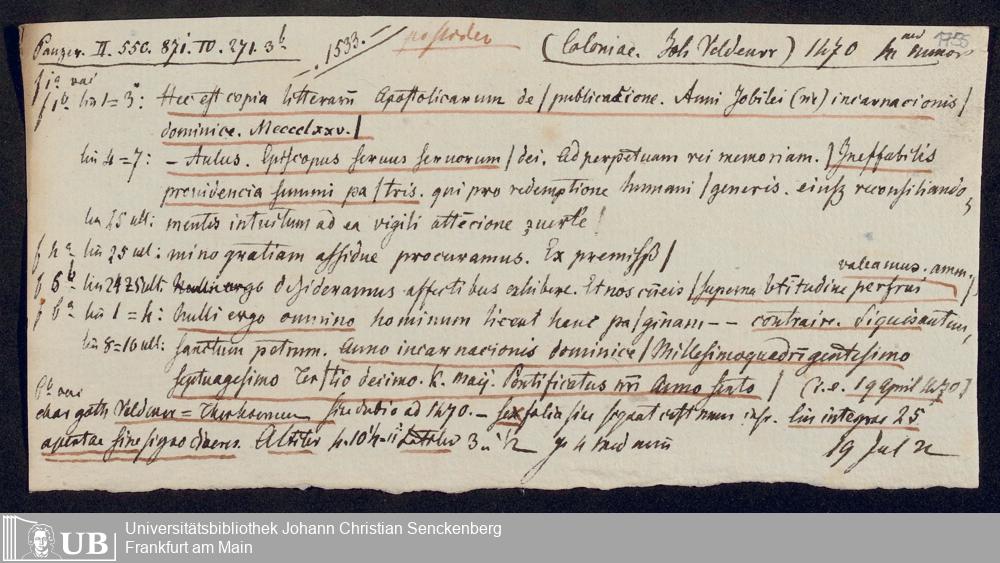 Panzer. II. 550. 871. IV. 271. 3b 1533. (Coloniae. Joh. Veldener) 1470
f 1a vac
f 1b lin 1=3: Hec est copia litterarū Apostolicarum de / publicacione. Anni Jobilei (sic) incarnacionis /
dominice. Mcccclxxv. /
lin 4=7: – Aulus. Episcopus seruus seruorum / dei. Ad perpetuam rei memoriam. / Ineffabilis
prouidencia summi pa / tris. qui pro redemptione humani / generis. reconsiliando
lin 25 ult: mentis intuitum ad ea vigili attēcione
lin 25 ult: mino gratiam assidue procuramus. Ex premissis /
valeamus. amen. /
lin 24 25 ult. desideramus affectibus exhibere. Et nos / superna btitudine perfrui
lin 1= Nulli ergo omnino hominum liceat hanc pa / ginam – – contraire. Siquis autem,
lin 8=10 ult: sanctum petrum. Anno incarnacionis dominice / Millesimoquadringentesimo
septuagesimo Ter / tio decimo. K. Maij. Pontificatus nr̄i Anno sexto / (i.e. 19 April 1470)
char goth Veldener = sine dubio ad 1470. – sex folia sine lin integrae 25
apertae sine signo 4. 3 1/2
19 Jul
Universitätsbibliothek Johann Christian Senckenberg
UB Frankfurt am Main